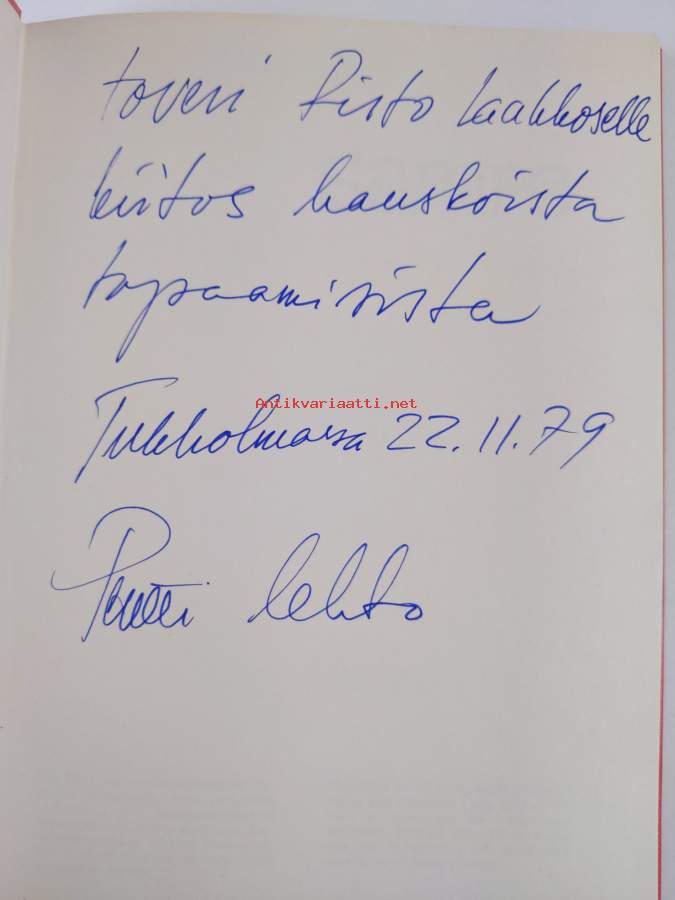 toveri Risto Laakkoselle
kiitos hauskoista
tapaamisista
Antikvariaatti.net
Tukholmassa 22.11.79
Pentti Lehto